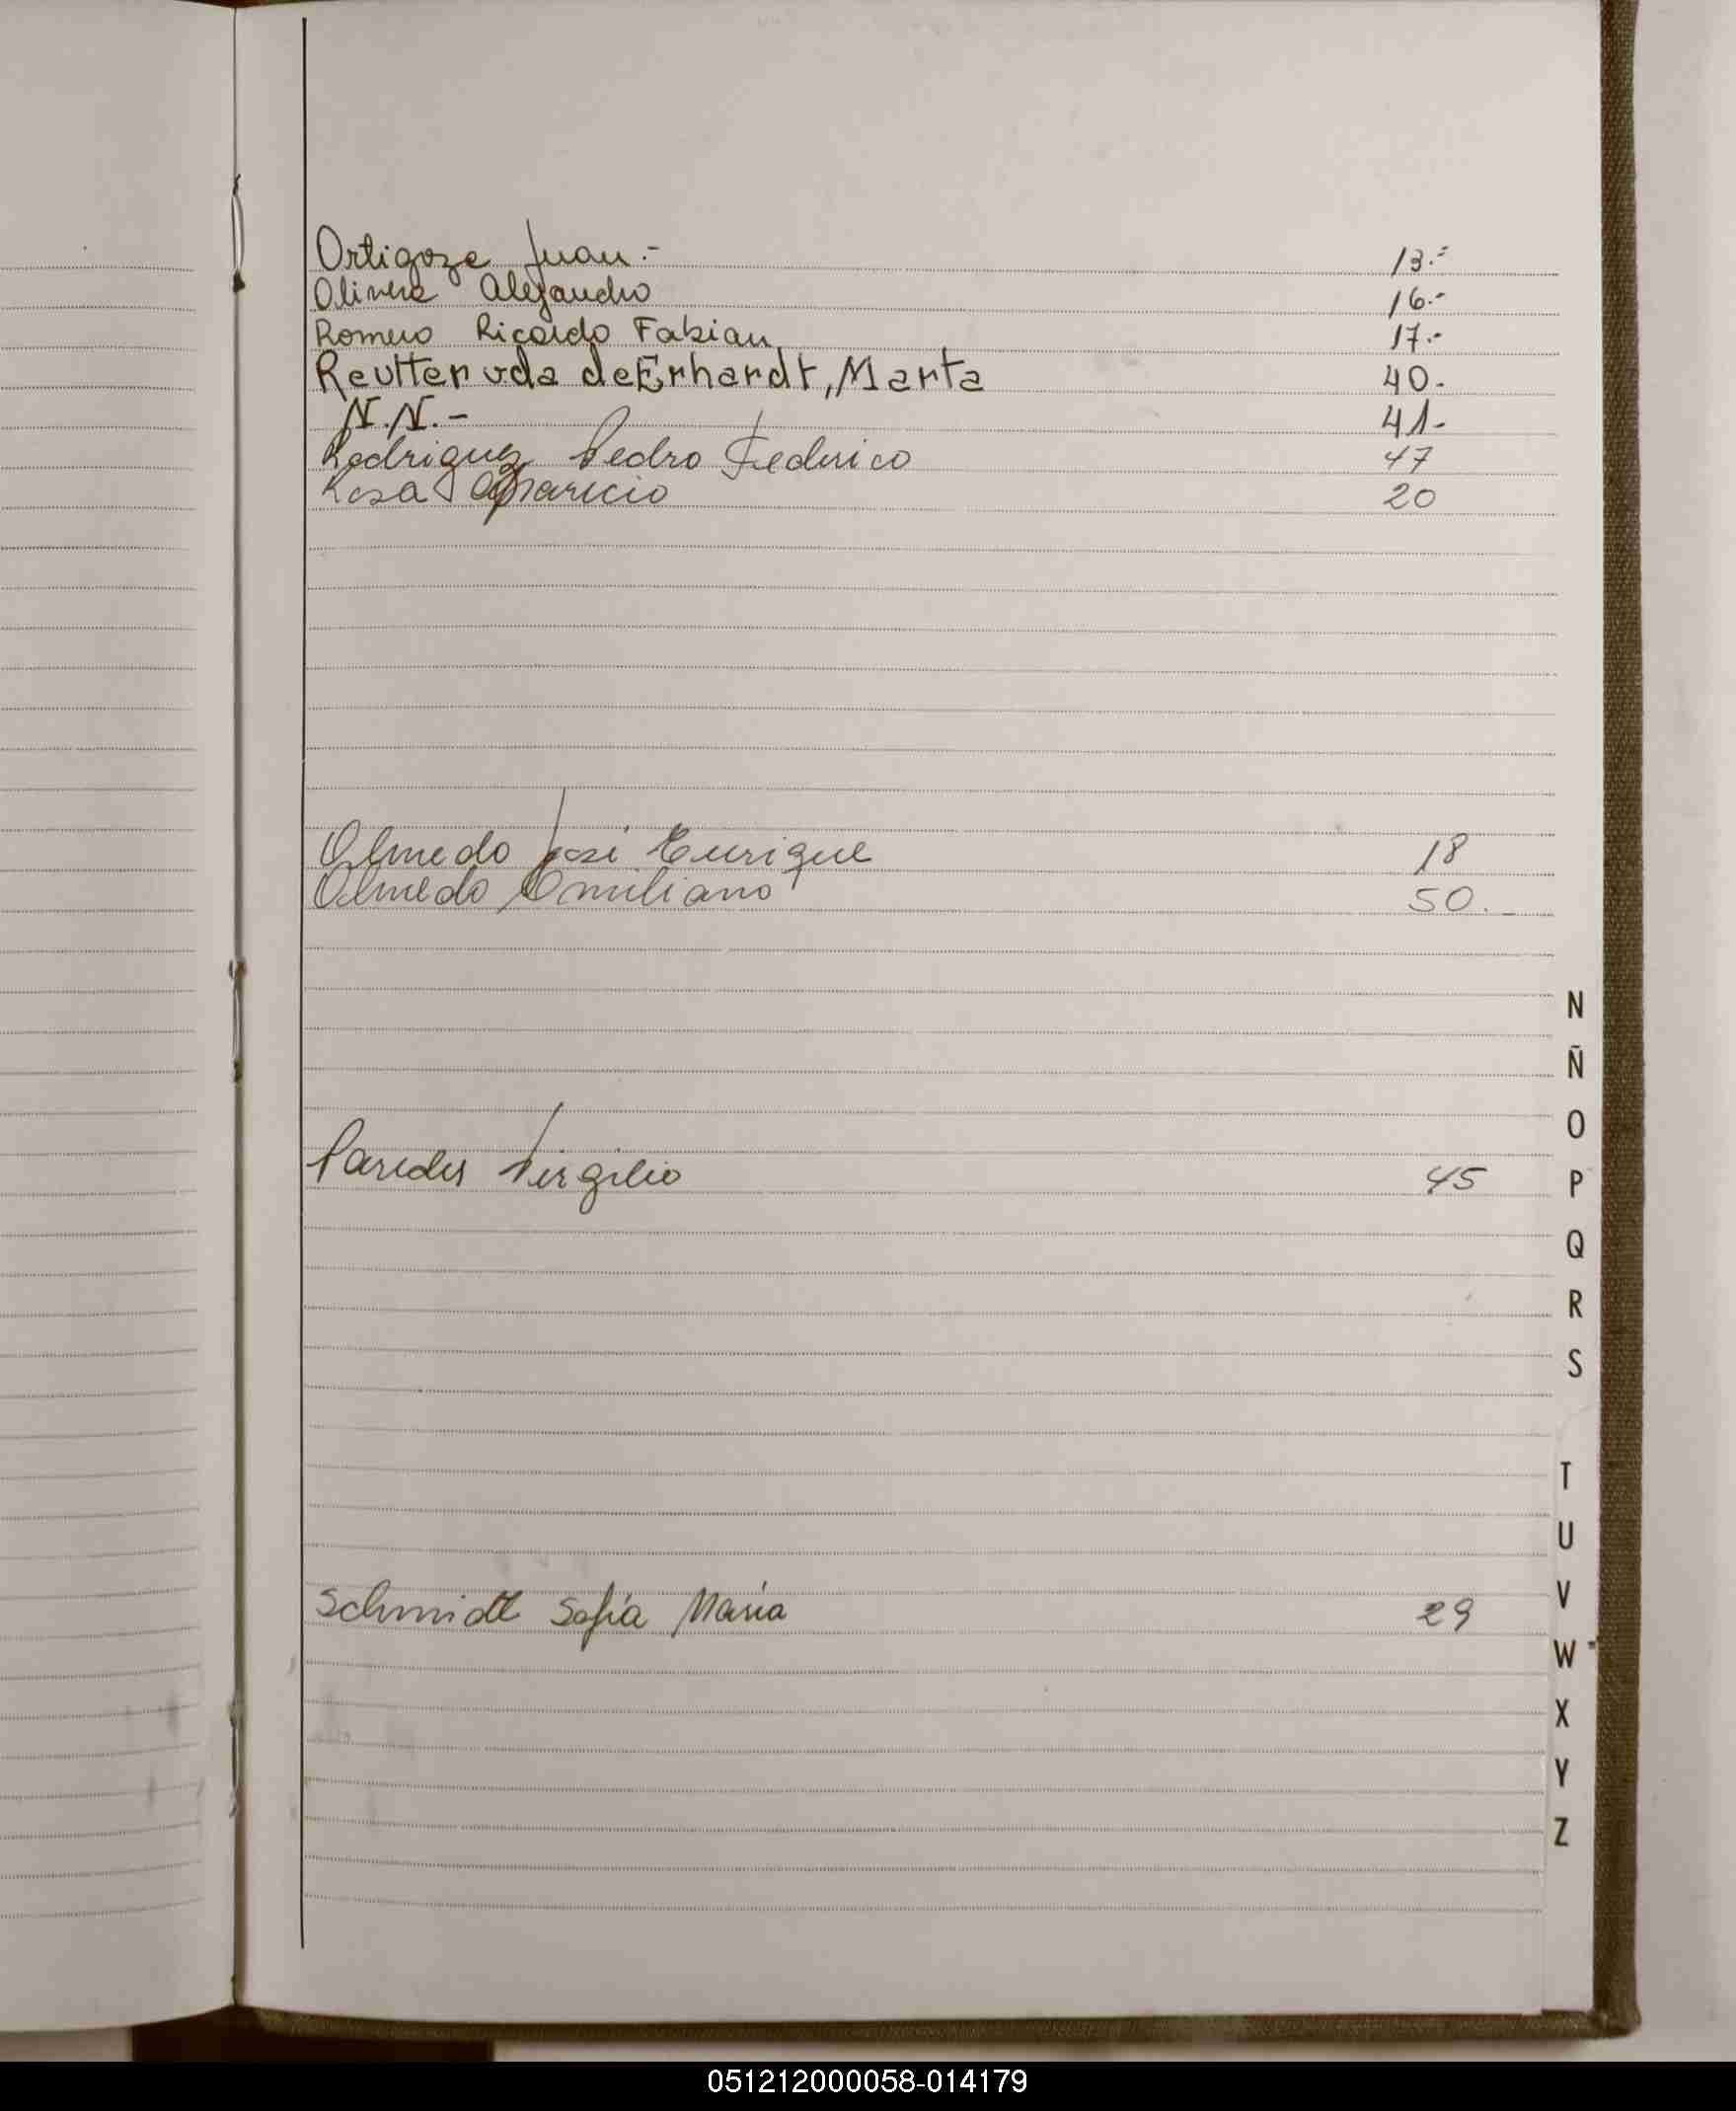 Ortigoze Juan.- 13.-
Olivera Alejandro 16.-
Romero Ricardo Fabian 17.-
Reutter vda de Erhardt, Marta 40.
N.N.- 41-
Rodriguez Pedro Federico 47
Rosa Aparicio 20
Olmedo José Enrique 18
Olmedo Emiliano 50.
N
Ñ
O
Paredes Virgilio 45
P
Q
R
S
T
U
V
Schmidt Sofía María 29
W
X
Y
Z
051212000058-014179